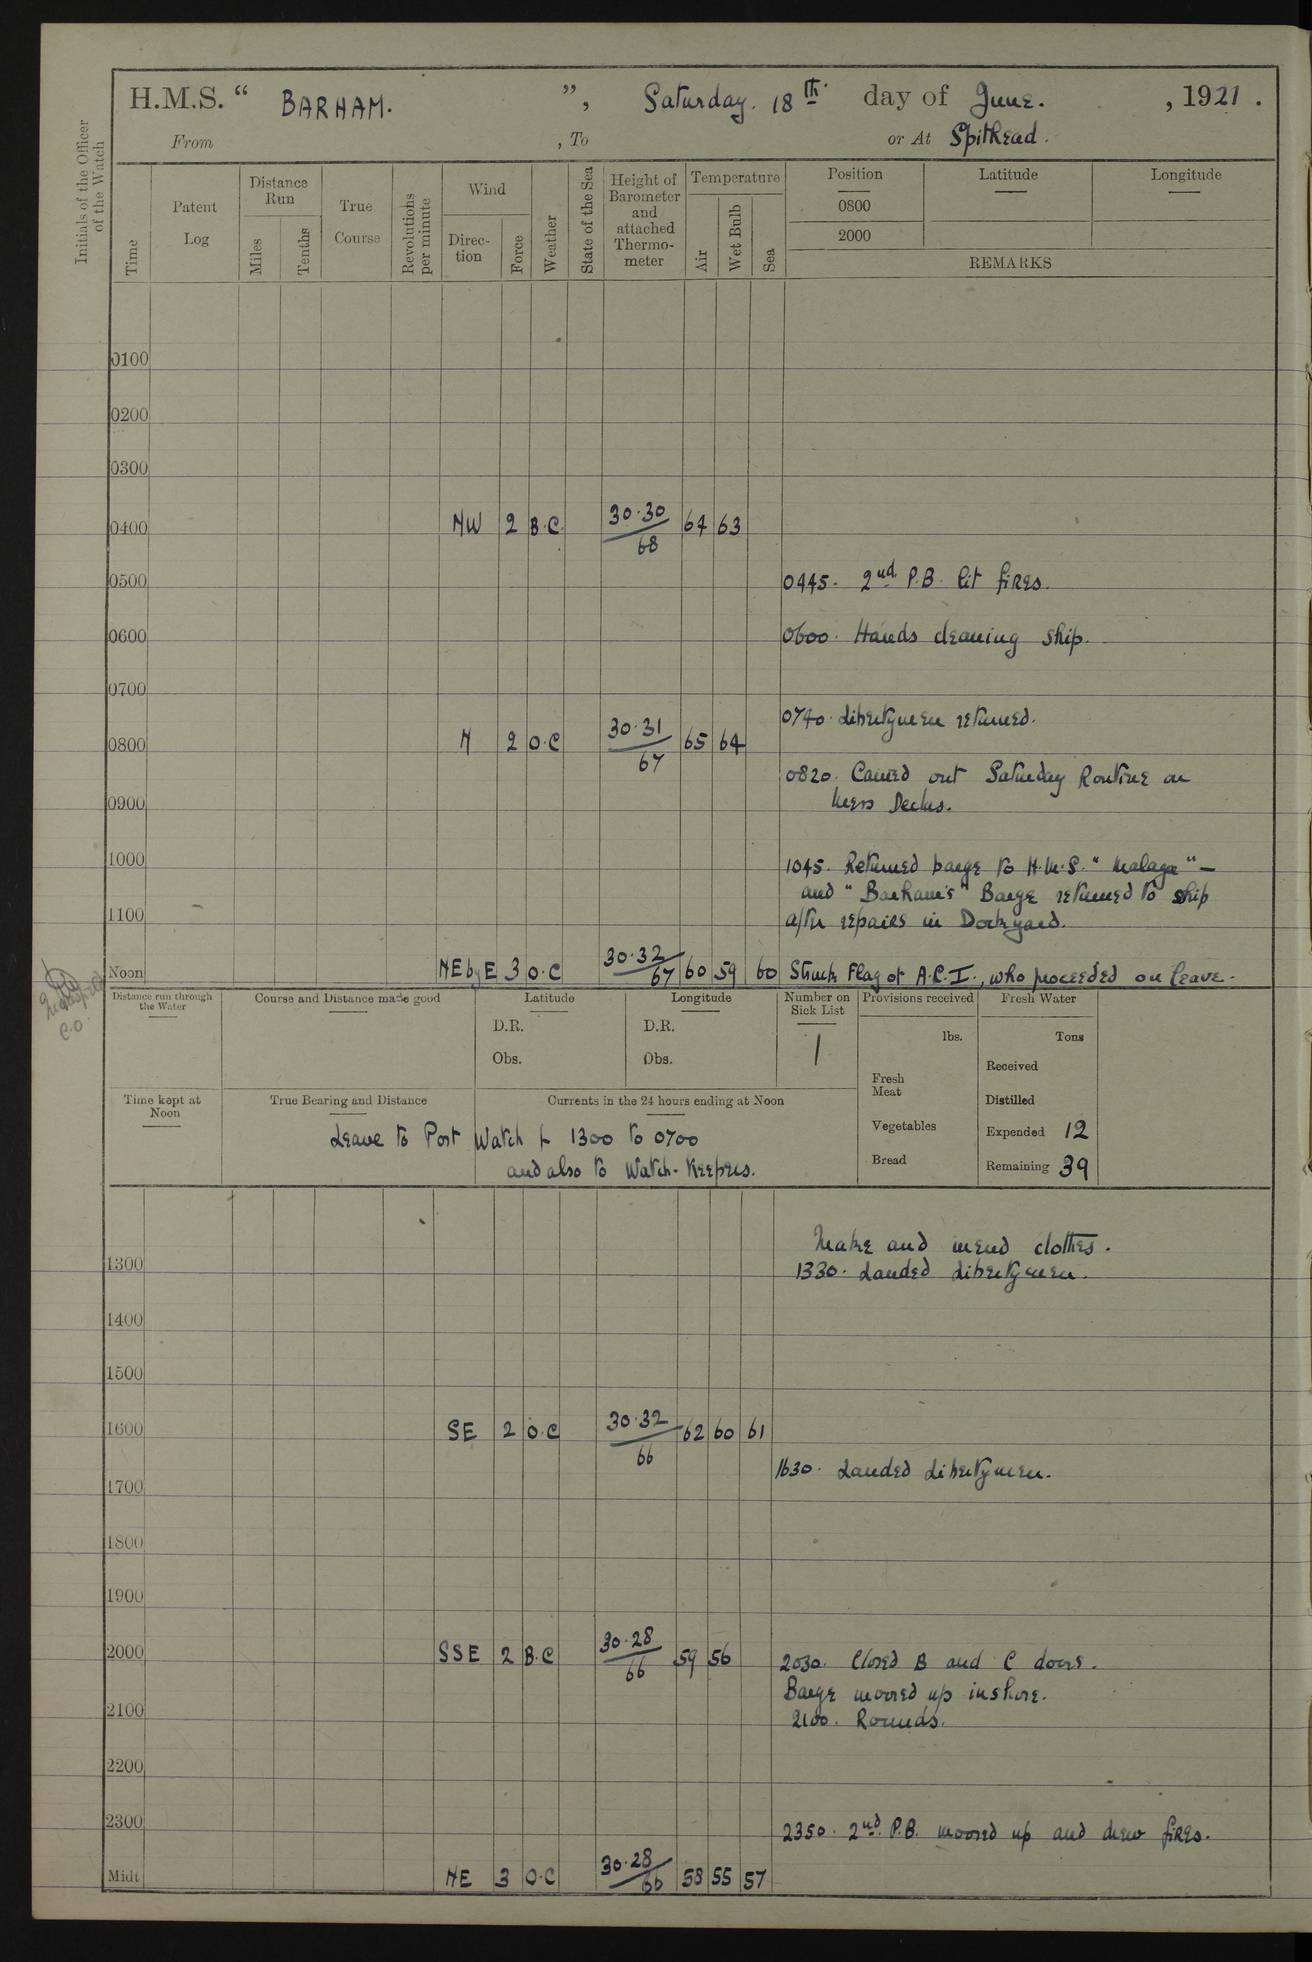 H.M.S. “ BARHAM. ”, Saturday. 18th. day of June. , 1921 .
From , To or At Spithead.
Initials of the Officer of the Watch
Time
Patent Log
Distance Run
Miles
Tenths
True Course
Revolutions per minute
Wind
Direc-tion
Force
Weather
State of the Sea
Height of Barometer and attached Thermo-meter
Temperature
Air
Wet Bulb
Sea
Position Latitude Longitude
0800
2000
REMARKS
0100
0200
0300
0400 NW 2 B.C. 30.30/68 64 63
0445. 2nd. P.B. lit fires.
0500
0600 0600. Hands cleaning ship.
0700
0740. Libertymen returned.
0800 N 2 O.C 30.31/67 65 64
0820. Carried out Saturday Routine on
Mess Decks.
0900
1000 1045. Returned barge to H.M.S. “ Malaya ” —
and “ Barham's ” Barge returned to ship
1100 after repairs in Dockyard.
Noon NE by E 3 O.C 30.32/67 60 59 60 Struck Flag of A.C.I., who proceeded on leave.
C.O.
Distance run through the Water
Course and Distance made good
Latitude
D.R.
Obs.
Longitude
D.R.
Obs.
Number on Sick List
1
Provisions received
lbs.
Fresh Meat
Vegetables
Bread
Fresh Water
Tons
Received
Distilled
Expended 12
Remaining 39
Time kept at Noon
True Bearing and Distance
Currents in the 24 hours ending at Noon
Leave to Port Watch f. 1300 to 0700
and also to Watch-Keepers.
Make and mend clothes.
1300 1330. Landed Libertymen.
1400
1500
1600 SE 2 O.C 30.32/66 62 60 61
1630. Landed Libertymen.
1700
1800
1900
2000 SSE 2 B.C 30.28/66 59 56 2030. Closed B and C doors.
Barge moored up inshore.
2100 2100. Rounds.
2200
2300 2350. 2nd. P.B. moored up and drew fires.
Midt NE 3 O.C 30.28/66 58 55 57